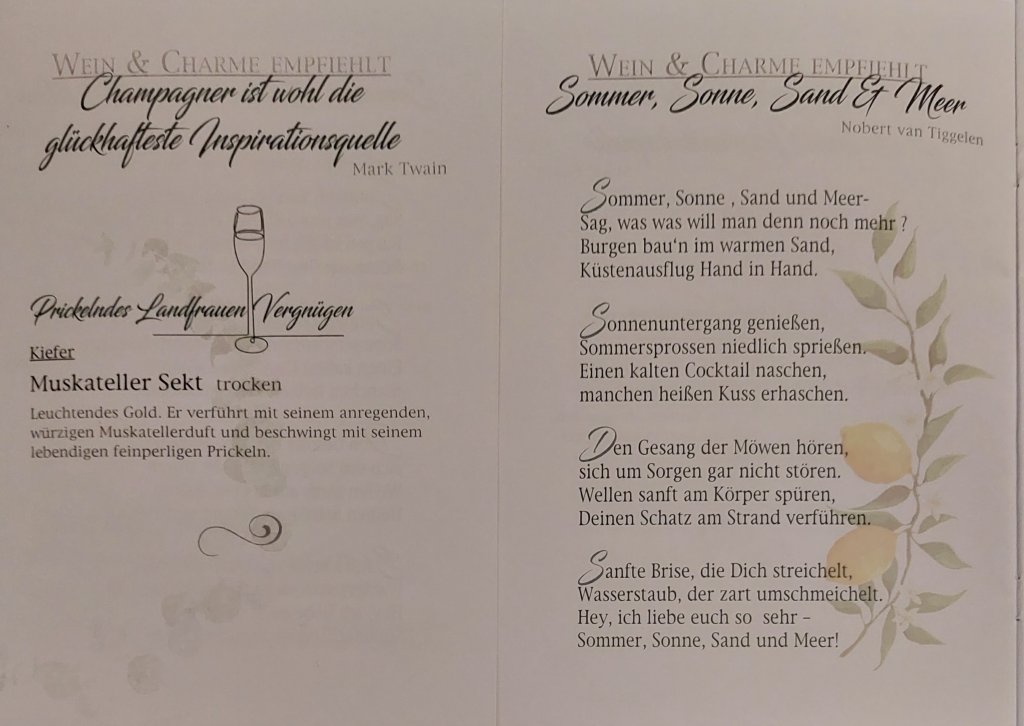 WEIN & CHARME EMPFIEHLT
Champagner ist wohl die
glückhafteste Inspirationsquelle
Mark Twain
Prickelndes Landfrauen Vergnügen
Kiefer
Muskateller Sekt trocken
Leuchtendes Gold. Er verführt mit seinem anregenden,
würzigen Muskatellerduft und beschwingt mit seinem
lebendigen feinperligen Prickeln.
WEIN & CHARME EMPFIEHLT
Sommer, Sonne, Sand & Meer
Nobert van Tiggelen
Sommer, Sonne , Sand und Meer-
Sag, was was will man denn noch mehr ?
Burgen bau'n im warmen Sand,
Küstenausflug Hand in Hand.
Sonnenuntergang genießen,
Sommersprossen niedlich sprießen.
Einen kalten Cocktail naschen,
manchen heißen Kuss erhaschen.
Den Gesang der Möwen hören,
sich um Sorgen gar nicht stören.
Wellen sanft am Körper spüren,
Deinen Schatz am Strand verführen.
Sanfte Brise, die Dich streichelt,
Wasserstaub, der zart umschmeichelt.
Hey, ich liebe euch so sehr –
Sommer, Sonne, Sand und Meer!